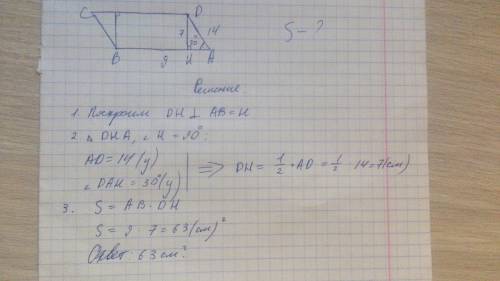 C D
7 14
30°
B 9 H A
S - ?
Решение
1. Построим DH ⊥ AB = H
2. △ DHA, ∠ H = 90°:
AD = 14 (у)
∠ DAH = 30° (у)
⇒ DH = 1/2 · AD = 1/2 · 14 = 7 (см)
3. S = AB · DH
S = 9 · 7 = 63 (см)²
Ответ: 63 см².